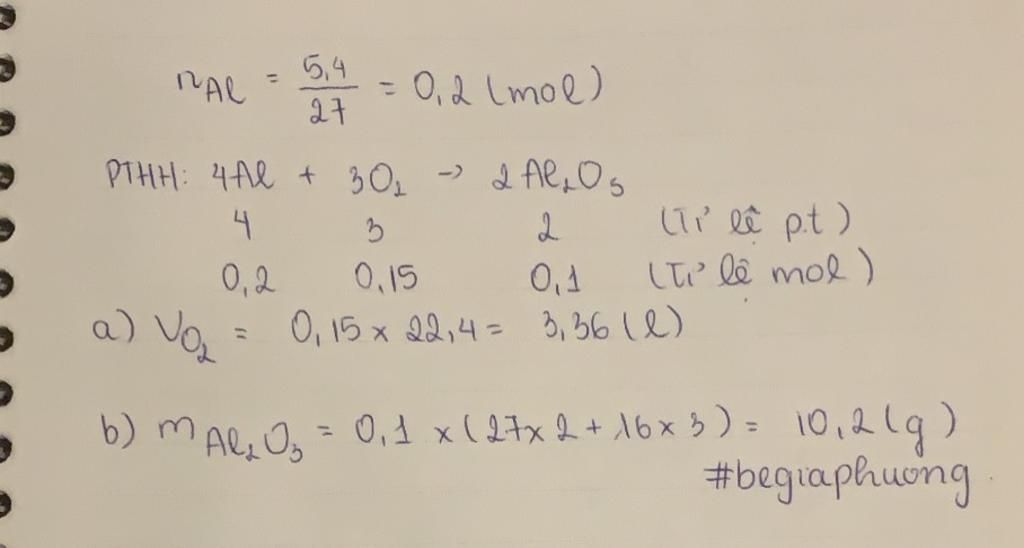 nAl = 5,4/27 = 0,2 (mol)
PTHH: 4Al + 3O₂ -> 2Al₂O₃
4 3 2 (Tỉ lệ p.t)
0,2 0,15 0,1 (Tỉ lệ mol)
a) VO₂ = 0,15 x 22,4 = 3,36 (l)
b) mAl₂O₃ = 0,1 x (27x2 + 16x3) = 10,2 (g)
#begiaphuong